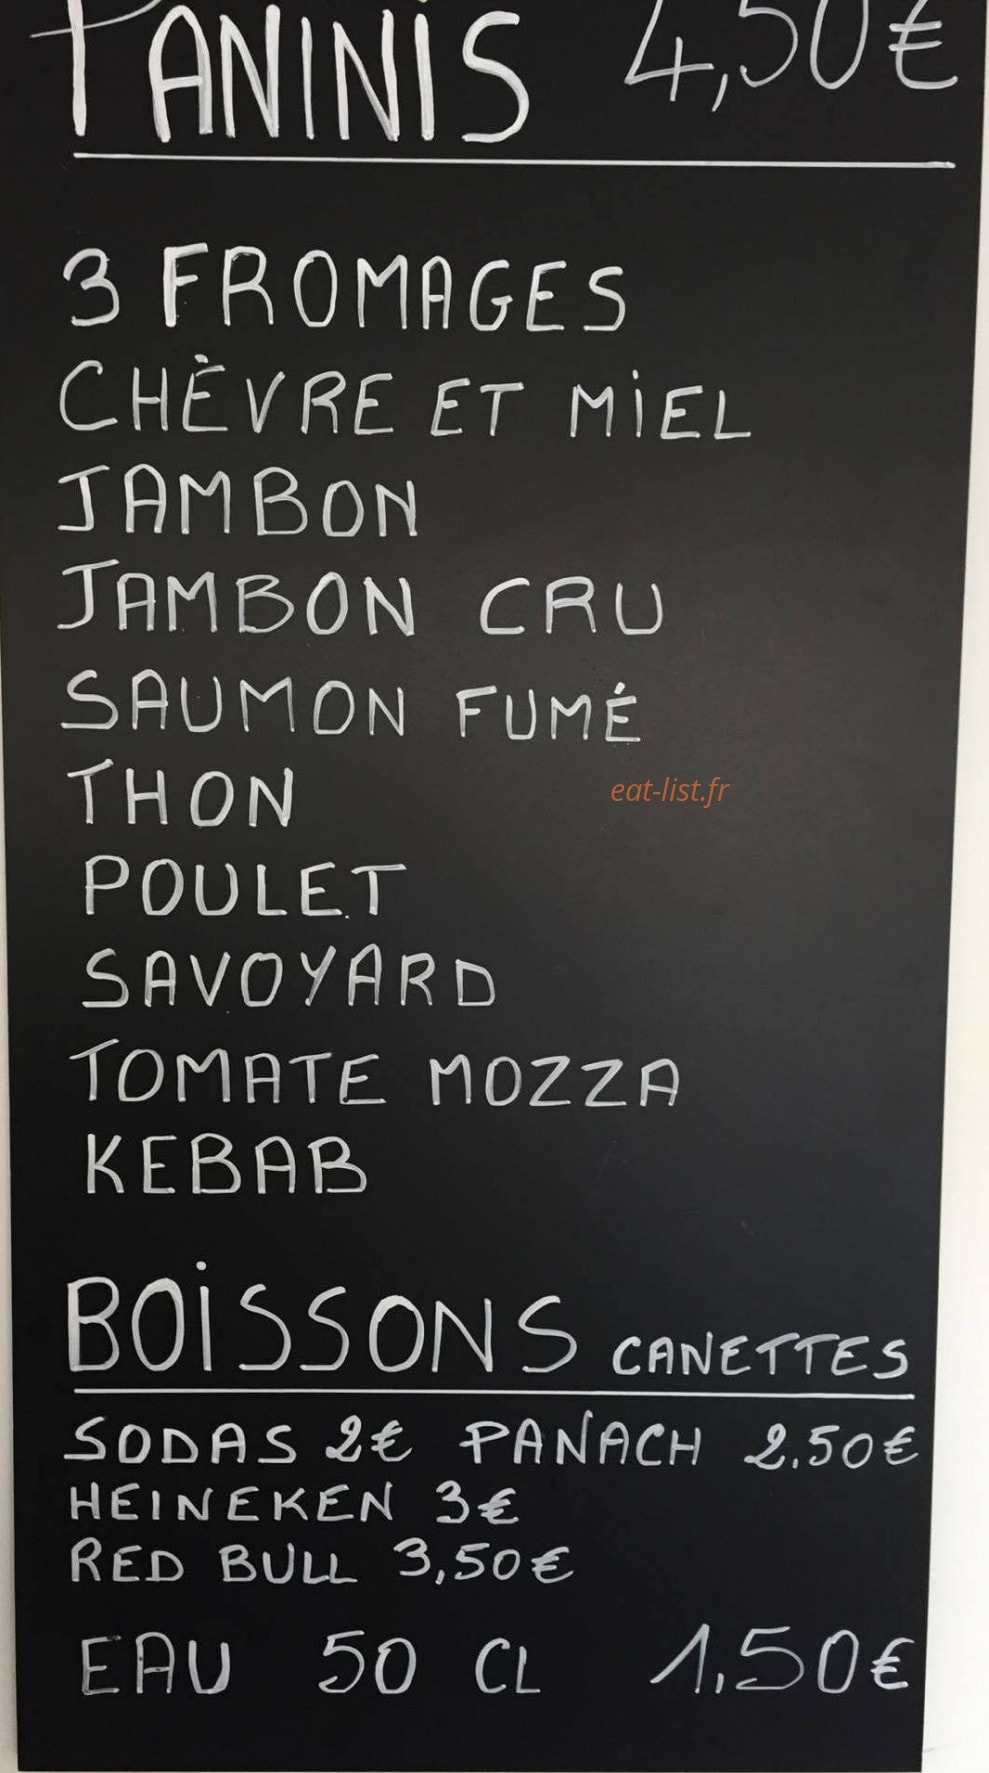 PANINIS 4,50€
3 FROMAGES
CHÈVRE ET MIEL
JAMBON
JAMBON CRU
SAUMON FUMÉ
THON
eat-list.fr
POULET
SAVOYARD
TOMATE MOZZA
KEBAB
BOISSONS CANETTES
SODAS 2€ PANACH 2.50€
HEINEKEN 3€
RED BULL 3,50€
EAU 50 CL 1,50€